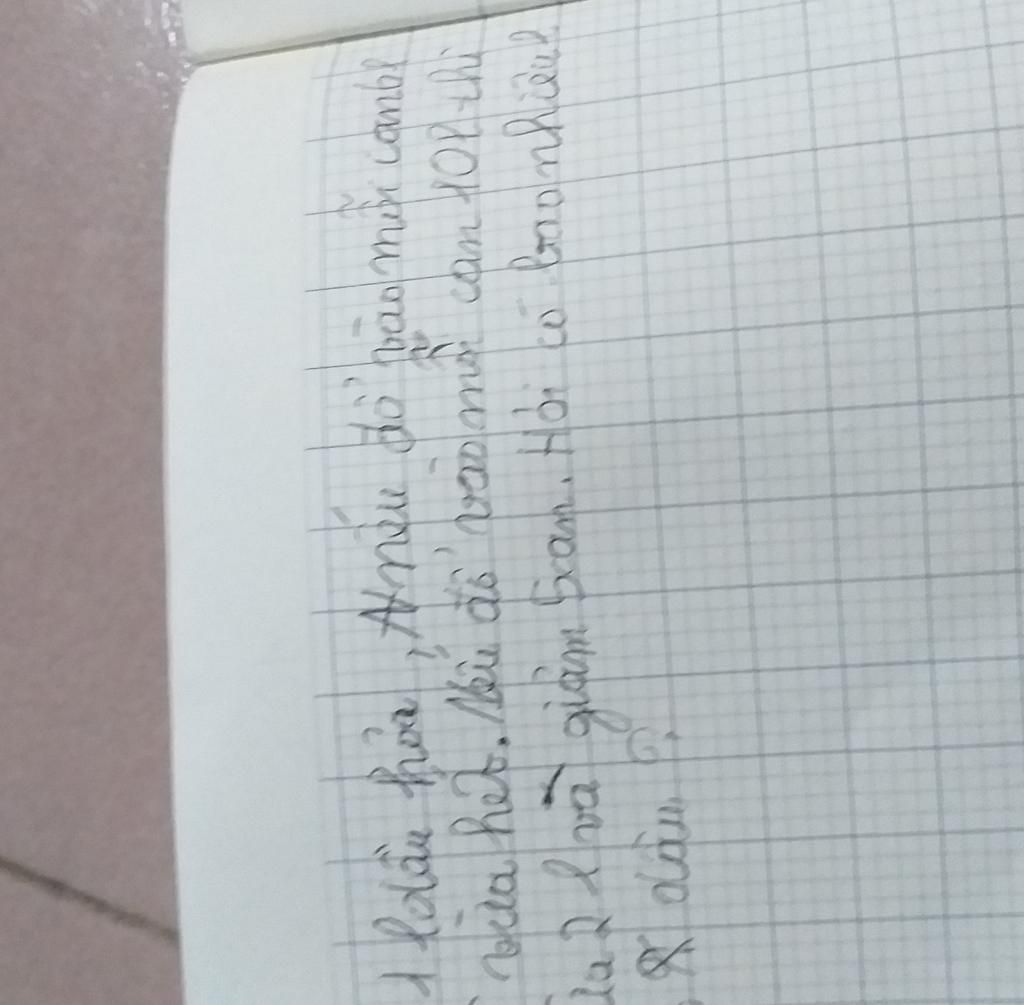 1 l dầu hỏa, nếu đổ vào mỗi can 6l
vừa hết. Nếu đổ vào mỗi can 10l thì
2 l và giảm 5 can. Hỏi có bao nhiêu
l dầu